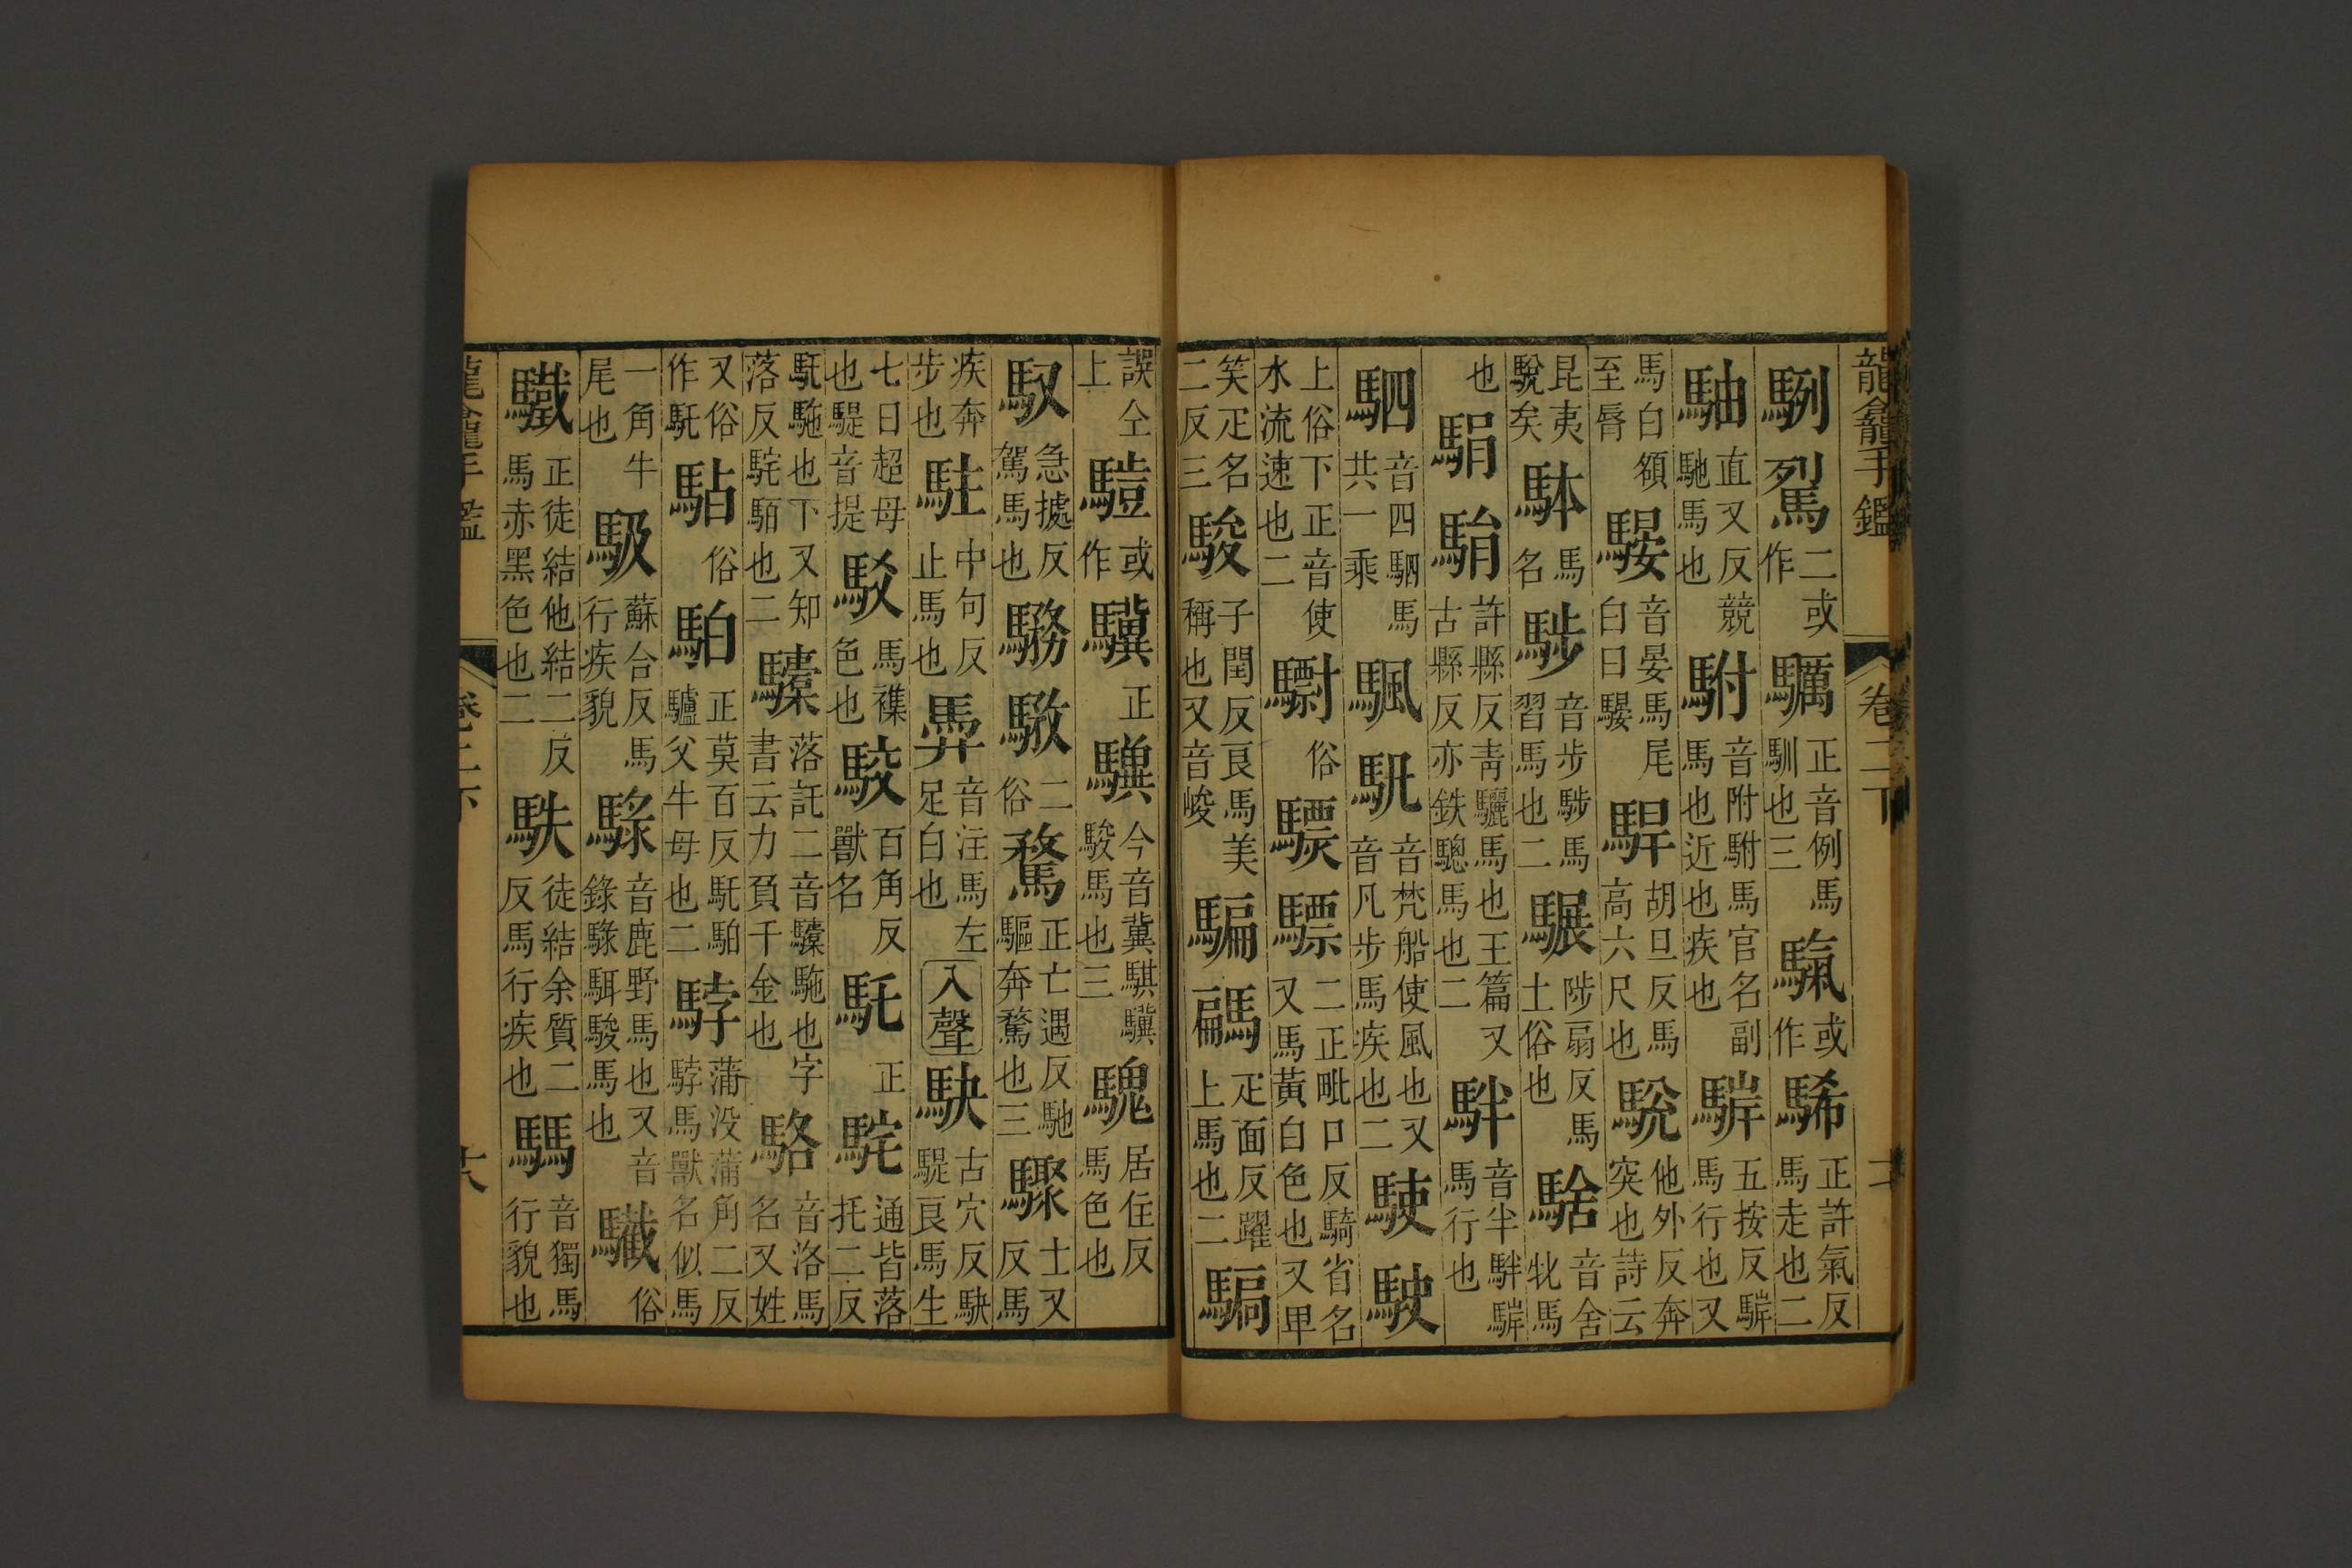 龍龕手鑑 卷二下
𮩴䮋二或作䮥正音例馬馴也三䭲或作䮎正許氣反馬走也二
䮆直又反競馳馬也駙音附駙馬官名副馬也近也疾也䮗五按反䮗馬行也又
馬白額至脣騴音晏馬尾白曰騴駻胡旦反馬高六尺也駾他外反奔突也詩云
昆夷駾矣䮀馬名䮛音步䮛馬習馬也二䮼陟扇反馬土俗也騇音舍牝馬
也駽䮄許縣反青驪馬也王篇又古縣反亦鉄驄馬也二䭴音半䭴䮗馬行也
駟音四駟馬共一乘䭵䭵音梵船使風也又音凡步馬疾也二駛駛
上俗下正音使水流速也二𩦠俗驃驃二正毗口反騎省名又馬黃白色也又毕
笑疋名二反三駿子閏反良馬美稱也又音峻騙䮁疋面反躍上馬也二騧
誤仝上䮽或作驥正驥今音冀騏驥駿馬也三騩居住反馬色也
馭急據反駕馬也䮘䮘二俗騖正亡遇反馳驅奔騖也三驟士又反馬
疾奔步也駐中句反止馬也馵音注馬左足白也入聲駃古穴反駃騠良馬生
七日超母也騠音提駁馬襍色也駮百角反獸名馲正䭾通皆落托二反
馲駞也下又知落反䭾駞也二驝落託二音驝駞也字書云力負千金也駱音洛馬名又姓
又俗作馲䩞俗䮂正莫百反馲䮂驢父牛母也二䮀蒲没蒲角二反䮀馬獸名似馬
一角牛尾也馺蘇合反馬行疾貌騄音鹿野馬也又音錄騄駬駿馬也䮾俗
驖正徒結他結二反馬赤黑色也二駃徒結余質二反馬行疾也䮷音獨馬行貌也
龍龕手鑑 卷二下 六